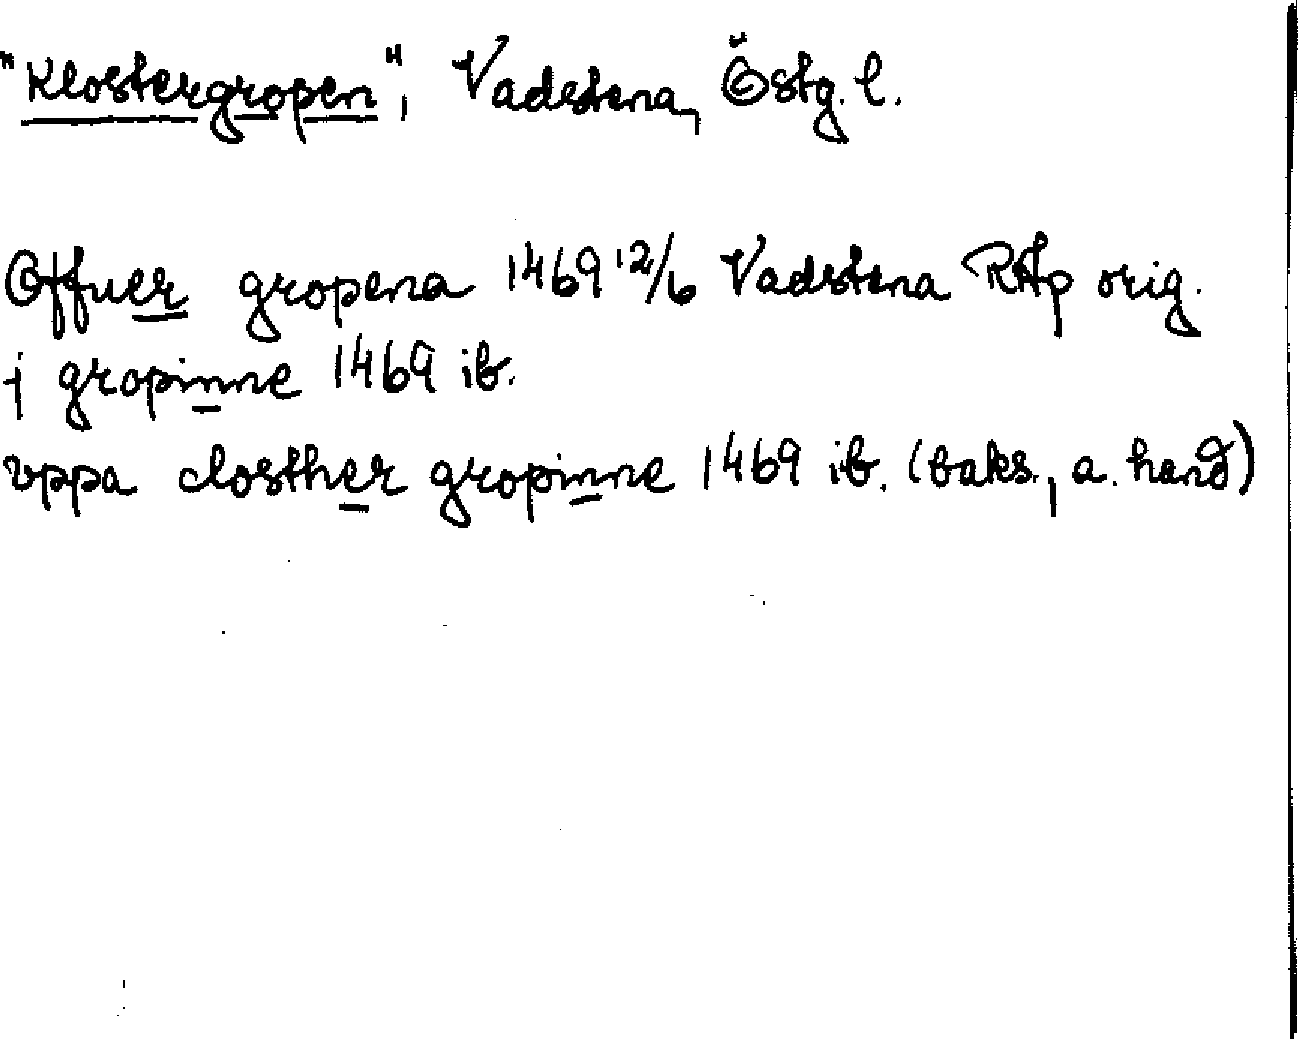 "Klostergropen", Vadstena, Östg. l.
Offuer gropena 1469 12/6 Vadstena RAp orig.
j gropinne 1469 ib.
vppa closther gropinne 1469 ib. (baks., a. hand)